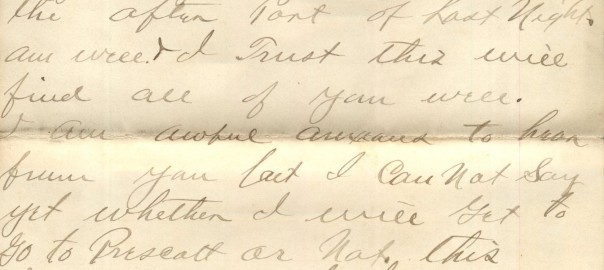 the after Part of Last Night.
am well. & I Trust this will
find all of you well.
I am awful anxaus to hear
frum you but I Can Not Say
yet whether I will Get to
go to Prescott or Not. this